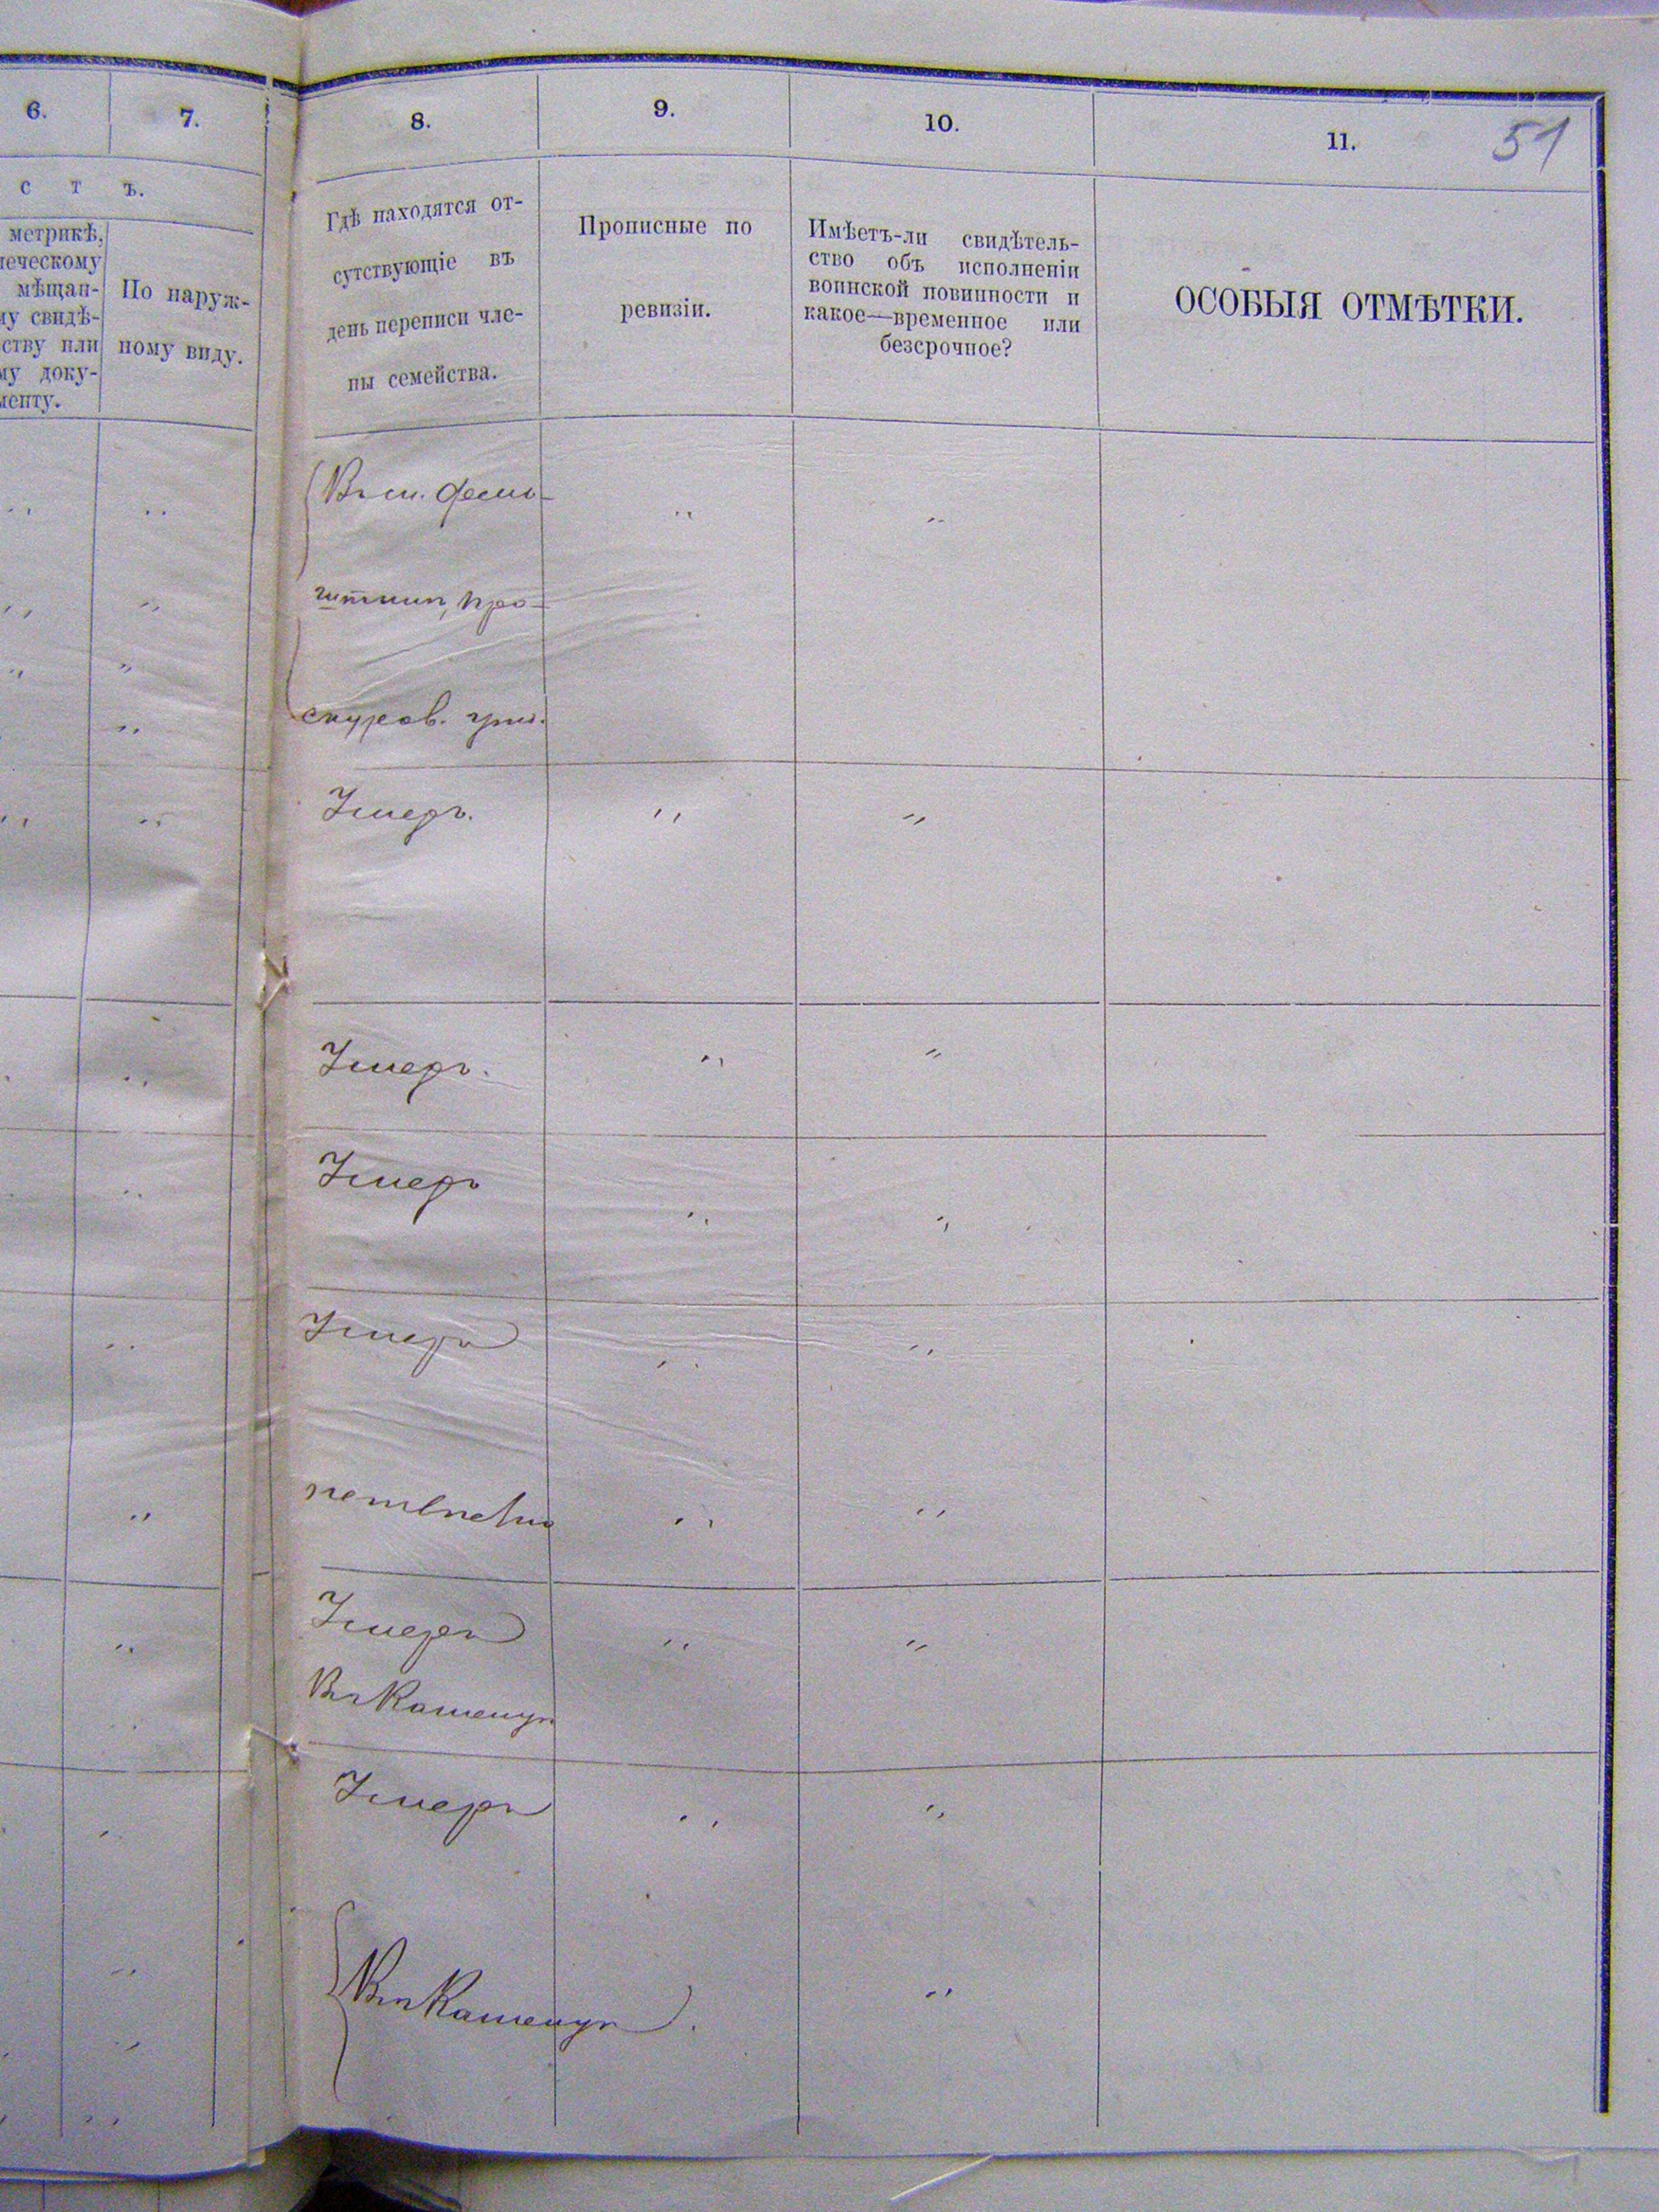 6.
7.
8.
9.
10.
11.
51
с т ъ.
метрикѣ,
мѣщан-
свидѣ-
ству или
доку-
менту.
По наруж-
ному виду.
Гдѣ находятся от-
сутствующіе въ
день переписи чле-
ны семейства.
Прописные по
ревизіи.
Имѣетъ-ли свидѣтель-
ство объ исполненіи
воинской повинности и
какое—временное или
безсрочное?
ОСОБЫЯ ОТМѢТКИ.
Въ м. Фельш-
тинѣ, Про-
скуров.
Умеръ.
Умеръ.
Умеръ
Умеръ
Умеръ
Въ Каменцѣ
Умеръ
Въ Каменцѣ.